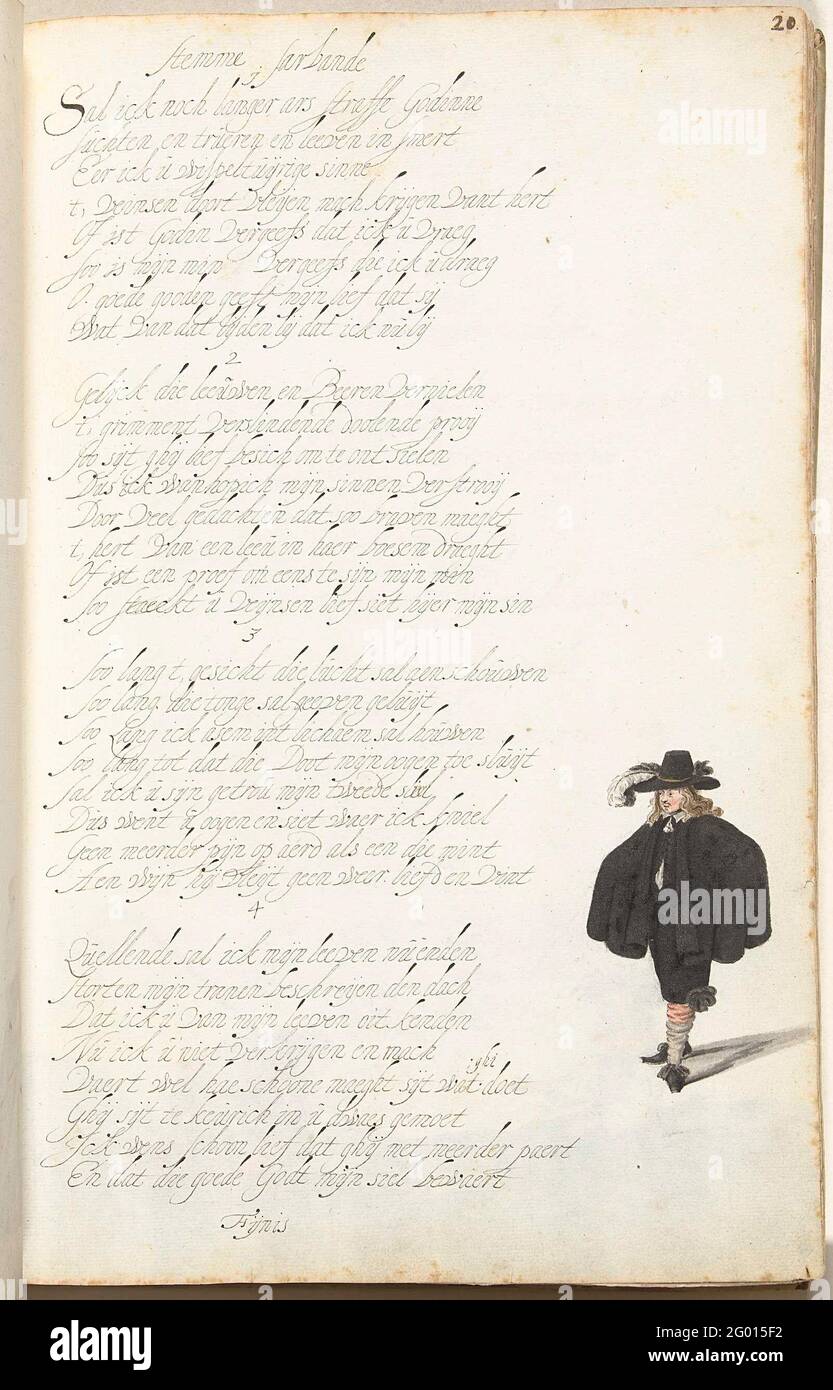 20
stemme sarbande
1
Sal ick noch langer ars straffe Godinne
suchten en trueren en leeven in smert
Eer ick u wispeltuijrige sinne
t, veinsen doort vleijen mach krijgen vant hert
Of ist Godin vergeefs dat ick u vraeg
soo is mijn min vergeefs die ick u draeg
O goede gooden geeft mijn lief dat sij
Wat van dat lijden lij dat ick nu lij
2
Gelijck die leeuwen en Beeren vernielen
t, grimment verslindende doolende prooij
soo sijt ghij lief besich om te ont sielen
Dus ick wanhopich mijn sinnen verstrooij
Door veel gedachten dat soo braven maeght
t, hert van een leeu in haer boesem draeght
Of ist een proef om eens te sijn mijn min
soo staeckt u veijnsen lief siet hijer mijn sin
3
soo lang t, gesicht die lucht sal aenschouwen
soo lang die tonge sal geeven geluijt
soo Lang ick asem int lichaem sal houwen
soo lang tot dat die Doot mijn oogen toe sluijt
sal ick u sijn getrou mijn tweede siel
Dus went u oogen en siet waer ick kniel
Geen meerder pijn op aerd als een die mint
Aen wijn hij vleijt geen weer liefd en vint
4
Quellende sal ick mijn leeven nu enden
storten mijn tranen beschreijen den dach
Dat ick u van mijn leeven oit kenden
Nu ick u niet verkrijgen en mach
Vaert wel hae schoone maeght sijt wat ghi doet
Ghij sijt te keurich in u dwaes gemoet
Ick wens schoon lief dat ghij met meerder paert
En dat die goede Godt mijn siel bewaert
Fijnis
alamy
Image ID: 2G015F2
www.alamy.com